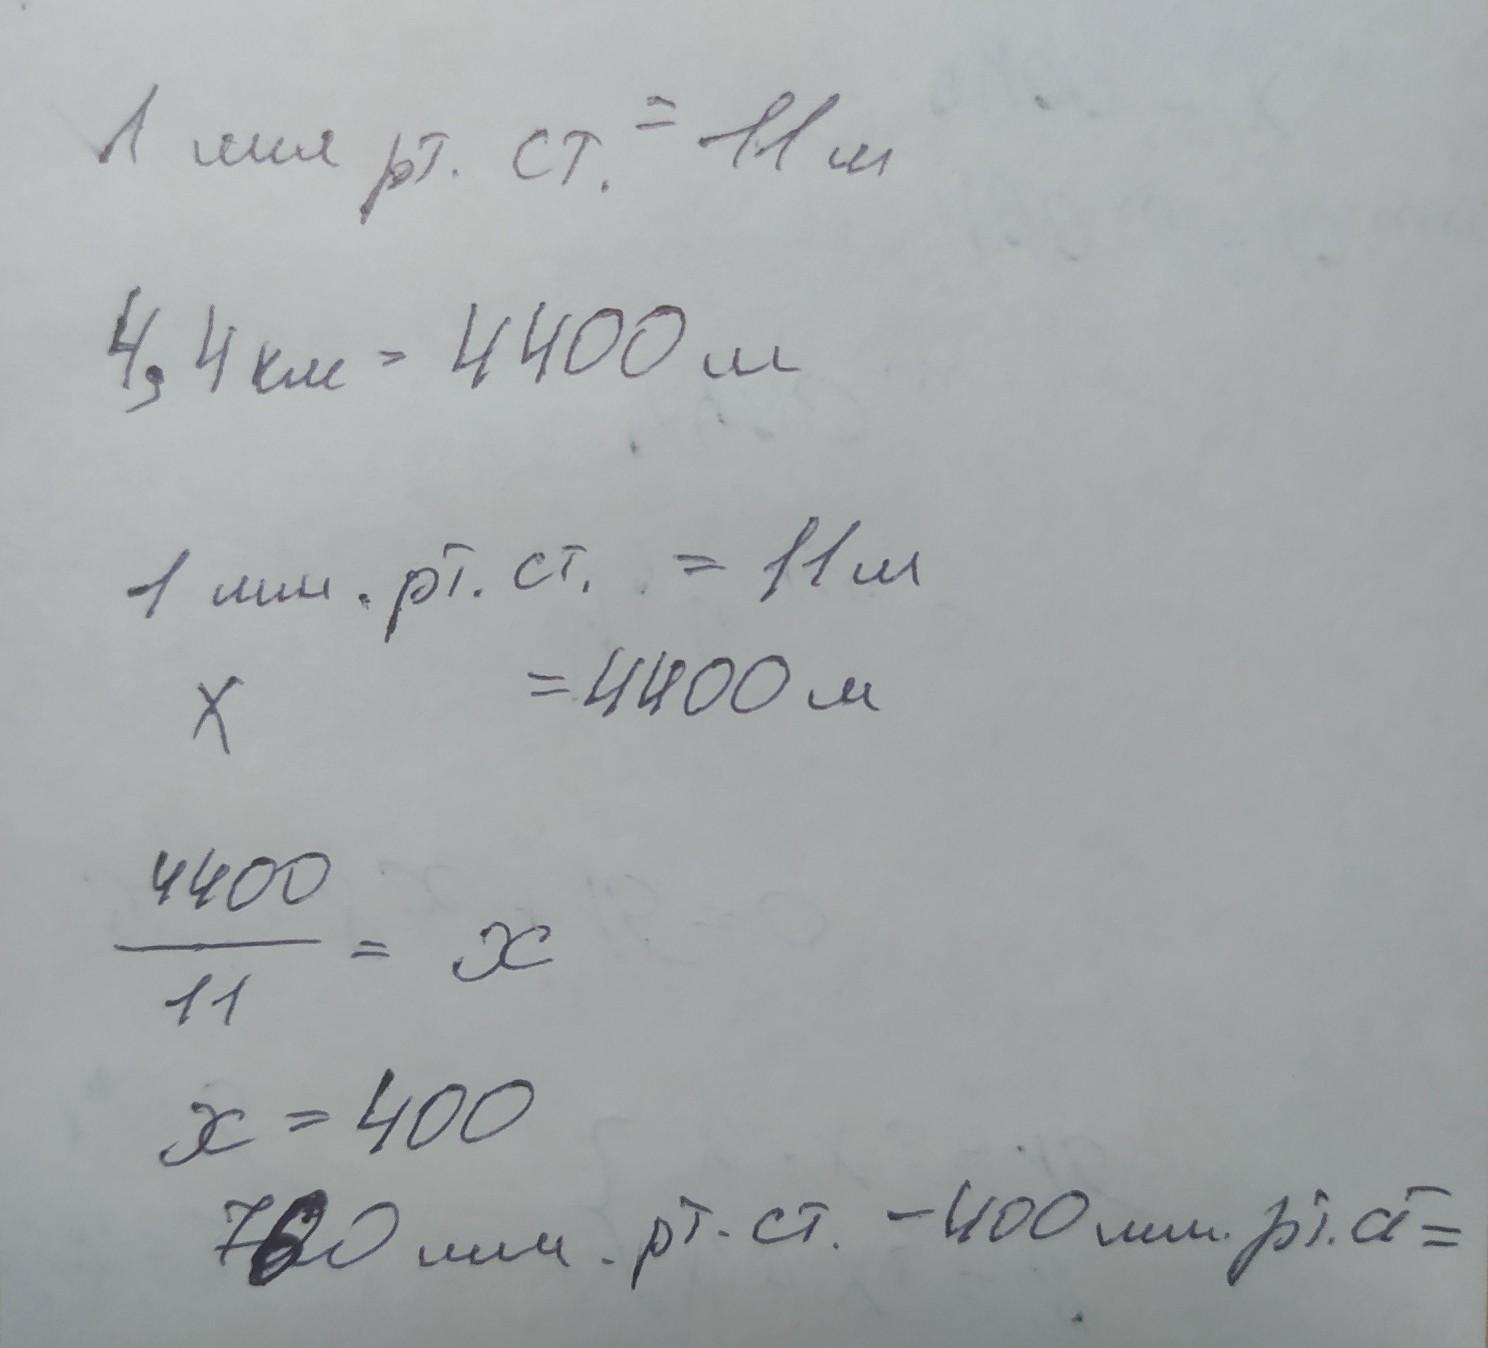 1 мм рт. ст. = 11 м
4,4 км = 4400 м
1 мм. рт. ст. = 11 м
X = 4400 м
4400
11
= x
x = 400
760 мм. рт. ст. - 400 мм. рт. ст =